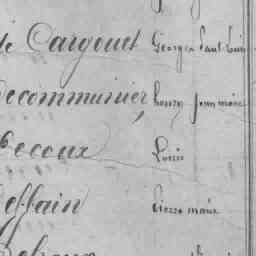 de Cargouet Georges Paul Louis
Decommunier, honoré jean marie
Decoux Louis
Deffain pierre marie